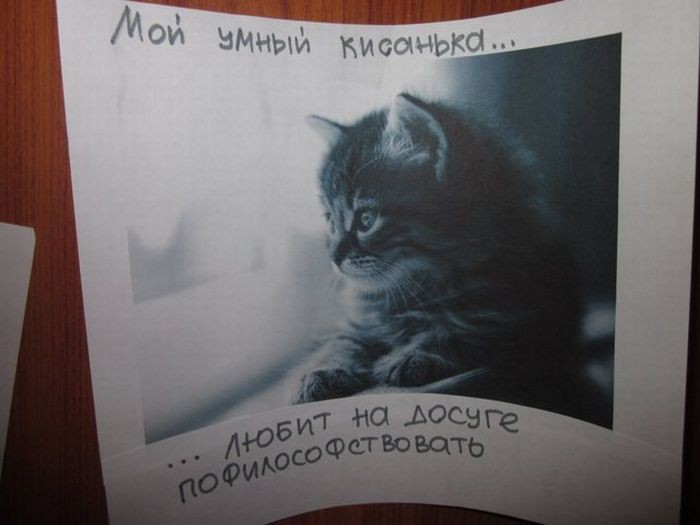 Мой умный кисанька...
... любит на досуге
пофилософствовать